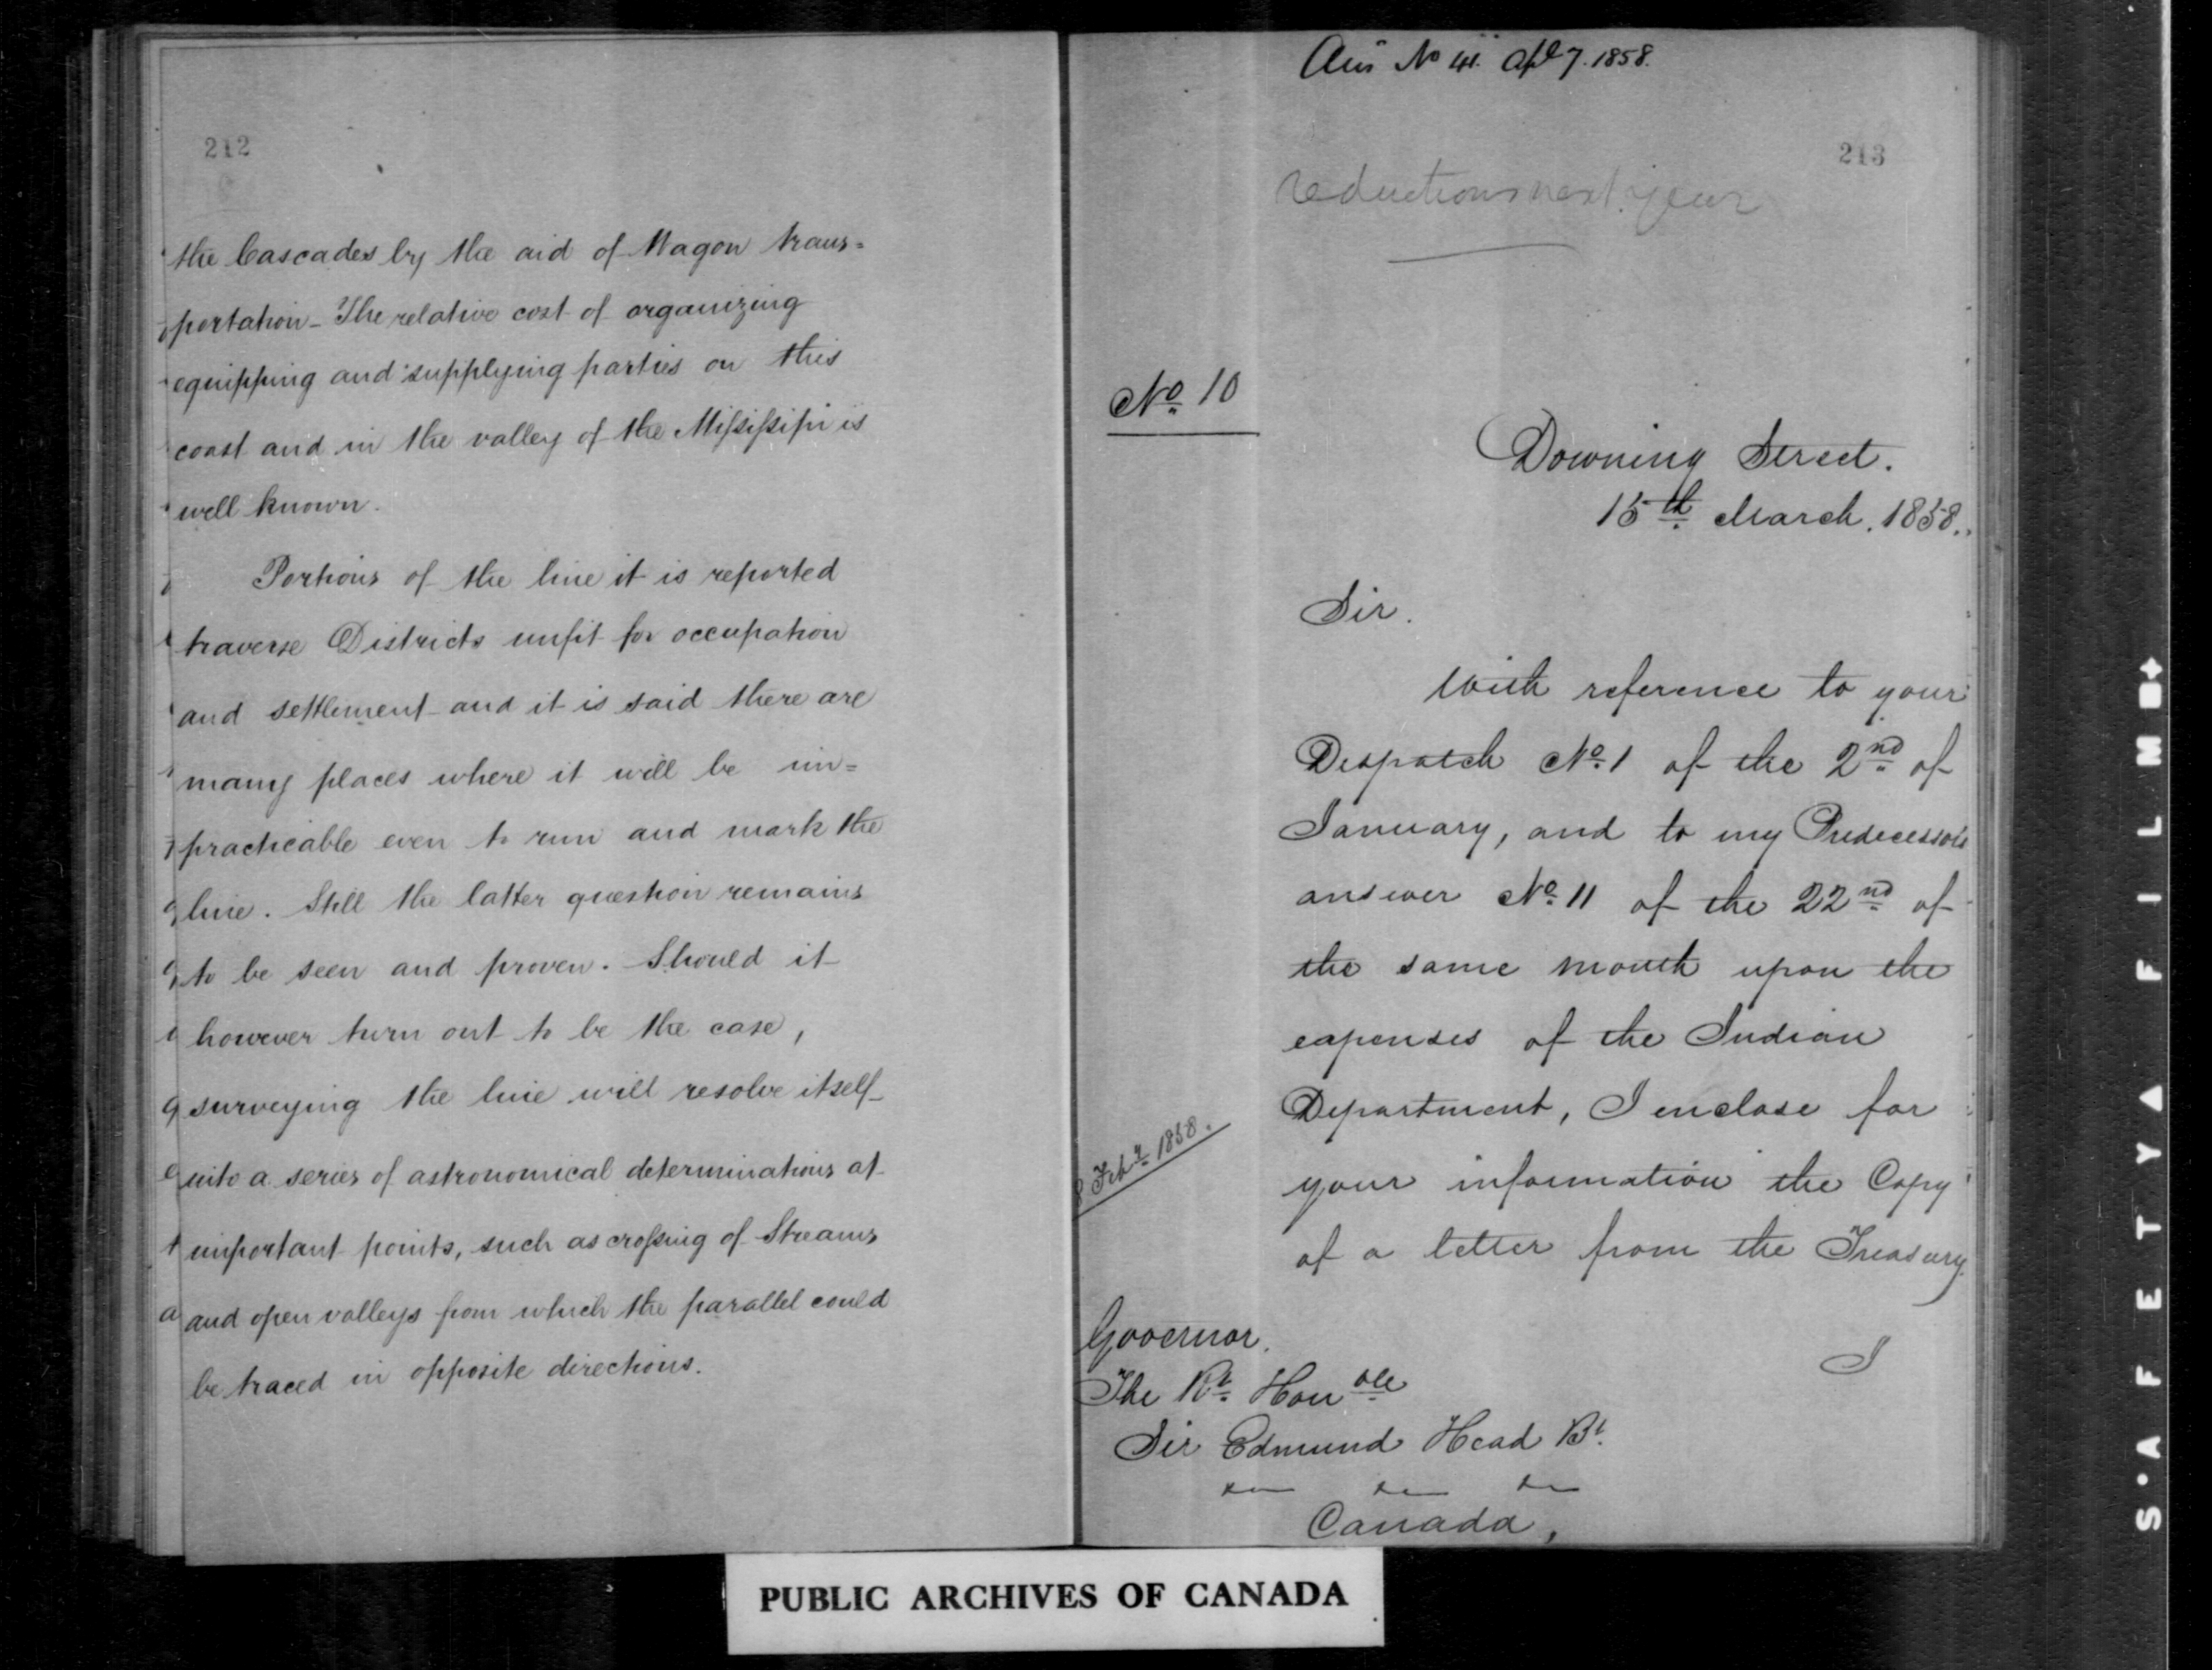 212
the Cascades by the aid of Wagon trans=
portation_ The relative cost of organizing
equipping and supplying parties on this
coast and in the valley of the Missisipi is
well known.
Portions of the line it is reported
traverse Districts unfit for occupation
and settlement and it is said there are
many places where it will be im=
practicable even to run and mark the
line. Still the latter question remains
to be seen and proven. Should it
however turn out to be the case,
surveying the line will resolve itself
into a series of astronomical determinations at
important points, such as crossing of Streams
and open valleys from which the parallel could
be traced in opposite directions.
Ans No 41. Apl 7. 1858.
213
reductions next year
No. 10
Downing Street.
15th March. 1858.
Sir.
With reference to your
Despatch No. 1 of the 2nd of
January, and to my Predecessor's
answer No. 11 of the 22nd of
the same month upon the
expenses of the Indian
Department, I enclose for
8 Feby 1858.
your information the Copy
of a letter from the Treasury
I
Governor.
The Rt. Honble
Sir Edmund Head Bt.
Canada,
PUBLIC ARCHIVES OF CANADA
S'AFETY FILM